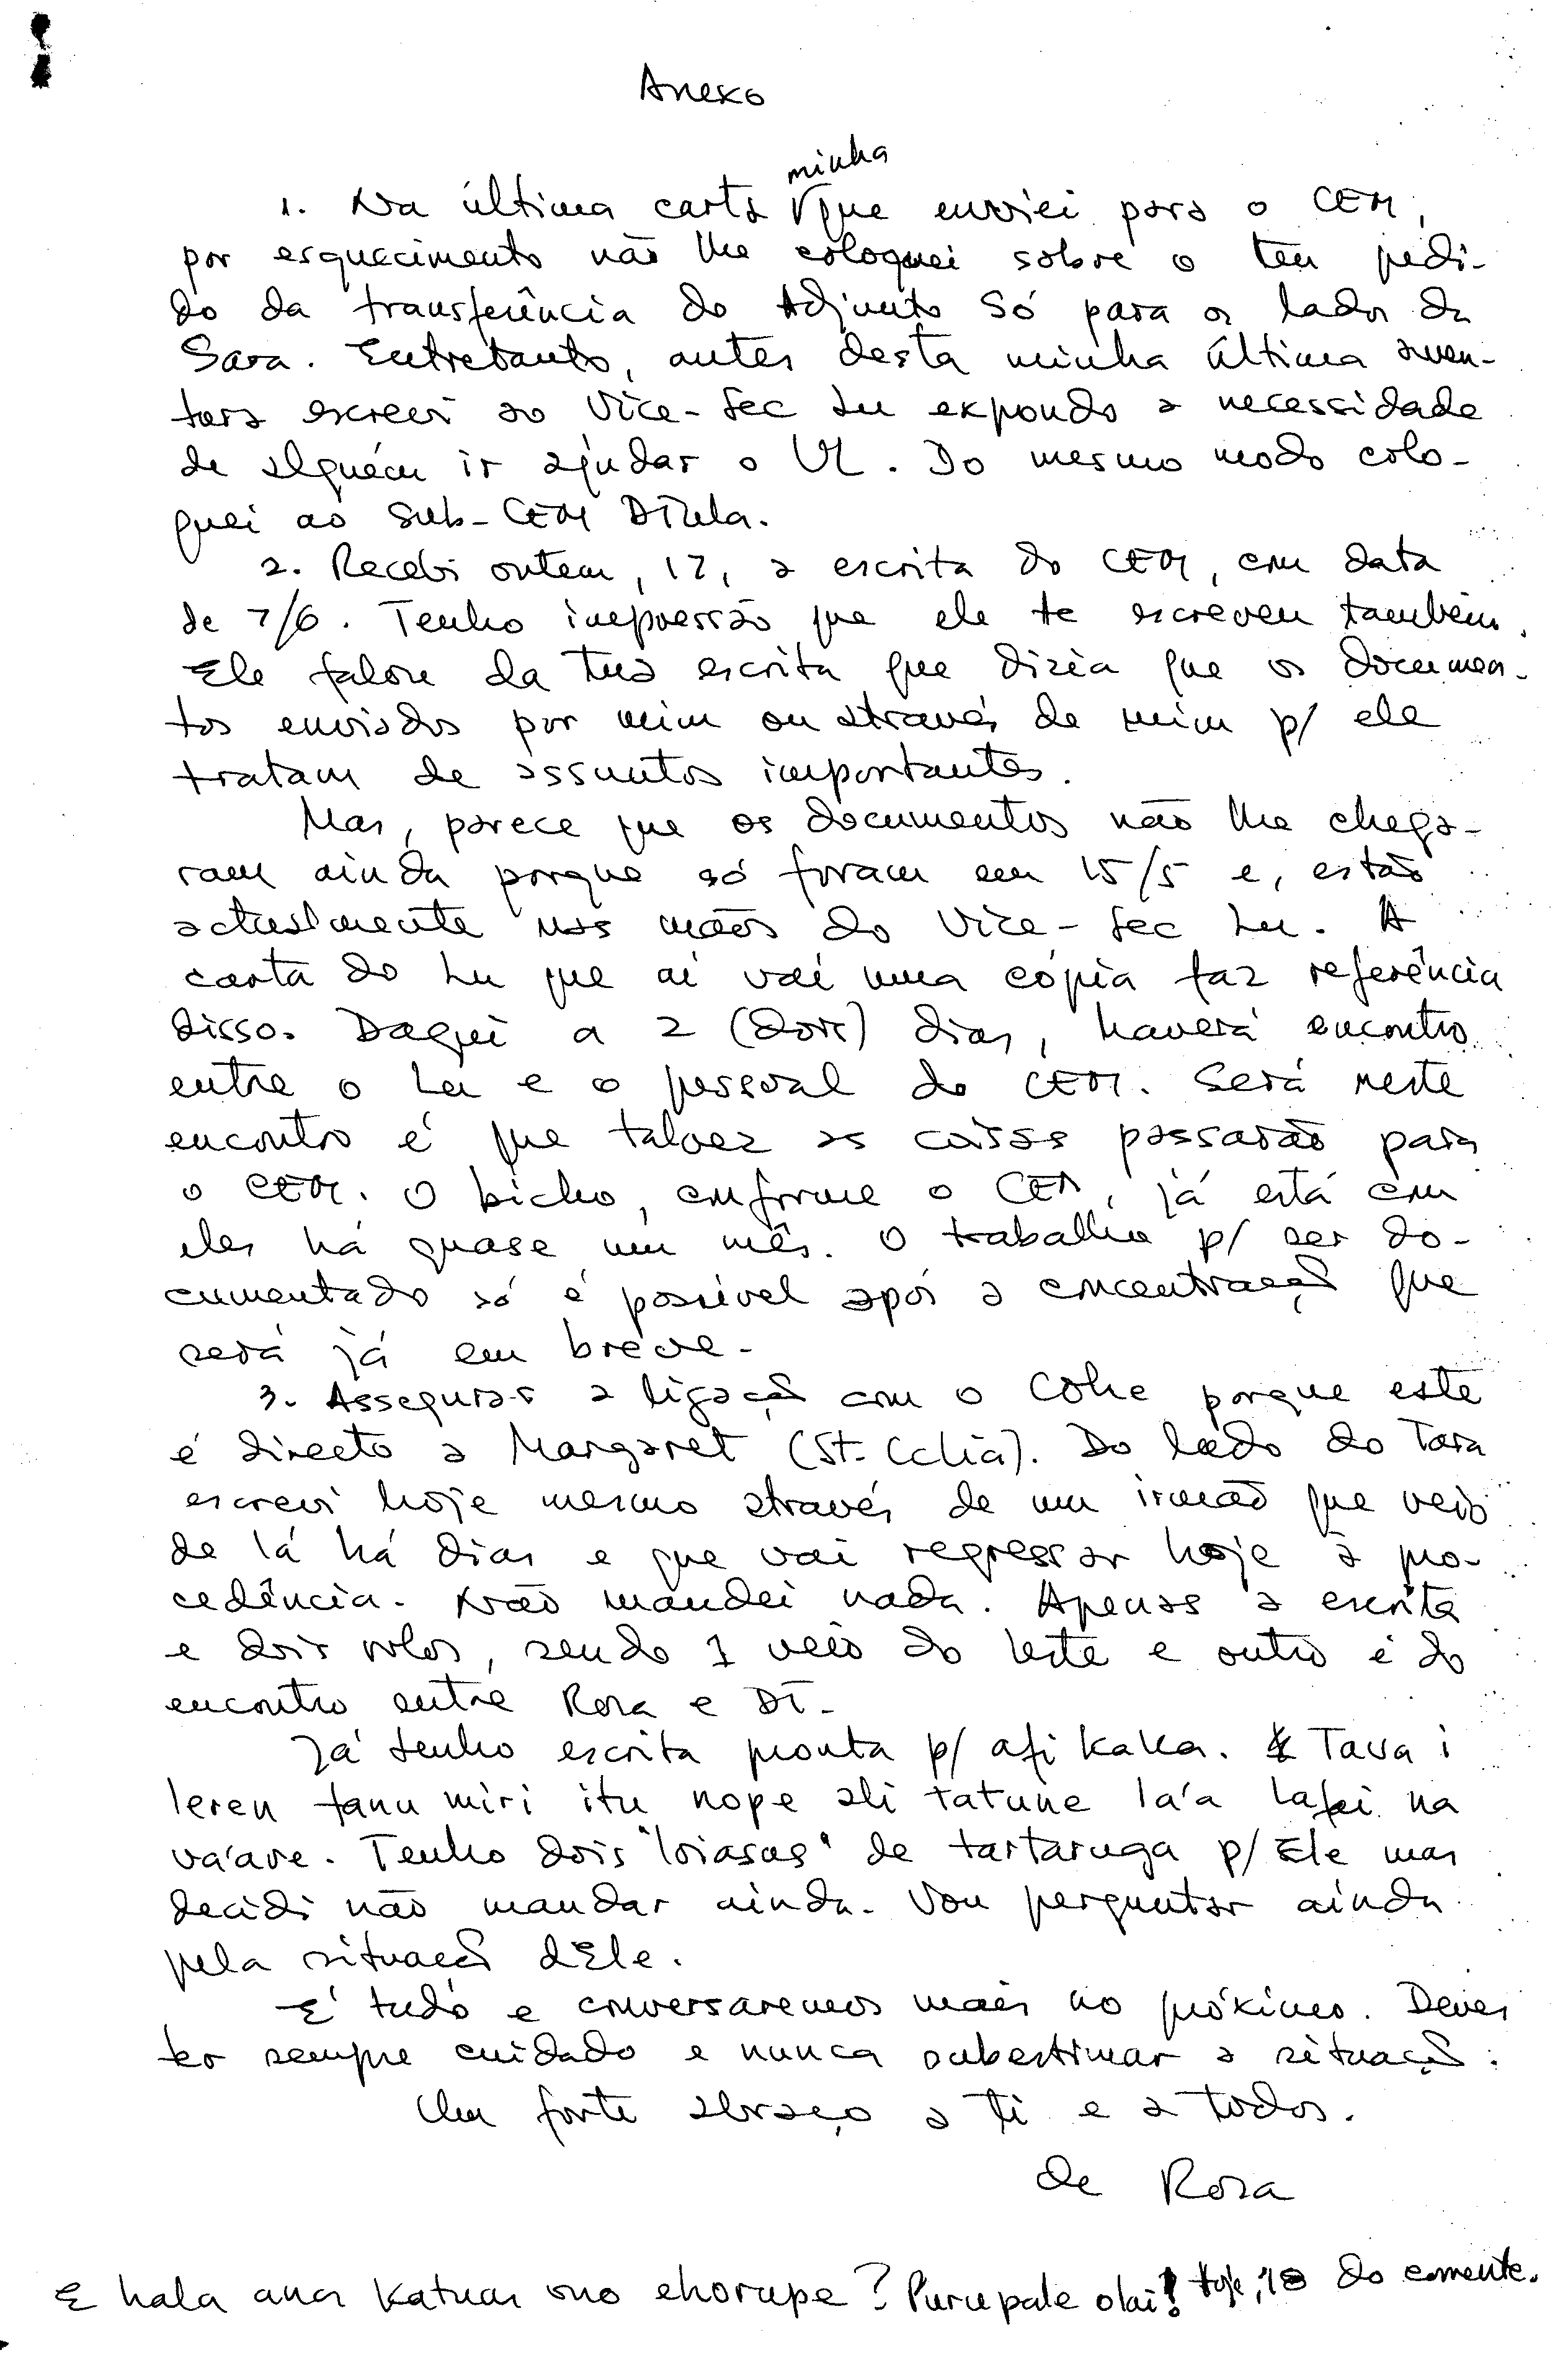 Anexo
minha
1. Na última carta que enviei para o CEM,
por esquecimento não lhe coloquei sobre o teu pedi-
do da transferência do Adjunto Só para os lados da
Sara. Entretanto, antes desta minha última aven-
tura escrevi ao Vice-Sec Lu expondo a necessidade
de alguém ir ajudar o UL. Do mesmo modo colo-
quei ao Sub-CEM Dītula.
2. Recebi ontem, 17, a escrita do CEM, com data
de 7/6. Tenho impressão que ele te escreveu também.
Ele falou da tua escrita que dizia que os documen-
tos enviados por mim ou através de mim p/ ele
tratam de assuntos importantes.
Mas, parece que os documentos não lhe chega-
ram ainda porque só foram em 15/5 e, estão
actualmente nas mãos do Vice-Sec Lu. A
carta do Lu que aí vai uma cópia faz referência
disso. Daqui a 2 (dois) dias, haverá encontro
entre o Lu e o pessoal do CEM. Será neste
encontro é que talvez as coisas passarão para
o CEM. O bicho, conforme o CEM, já está com
eles há quase um mês. O trabalho p/ ser do-
cumentado só é possível após a concentração que
será já em breve.
3. Assegurar a ligação com o Cohe porque este
é directo a Margaret (St. Cclia). Do lado do Tara
escrevi hoje mesmo através de um irmão que veio
de lá há dias e que vai regressar hoje à pro-
cedência. Não mandei nada. Apenas a escrita
e dois rolos, sendo 1 veio do leste e outro é do
encontro entre Rosa e DT.
Já tenho escrita pronta p/ afi kaka. Tava i
leren tanu miri itu nope ali tatune la'a lafai na
va'are. Tenho dois "loiasus" de tartaruga p/ Ele mas
decidi não mandar ainda. Vou perguntar ainda
pela situação dEle.
É tudo e conversaremos mais no próximo. Deves
ter sempre cuidado e nunca subestimar a situação.
Um forte abraço a ti e a todos.
de Rosa
E hala anar katuas ono ehorupe? Purupale olai! Hoje, 18 do corrente.